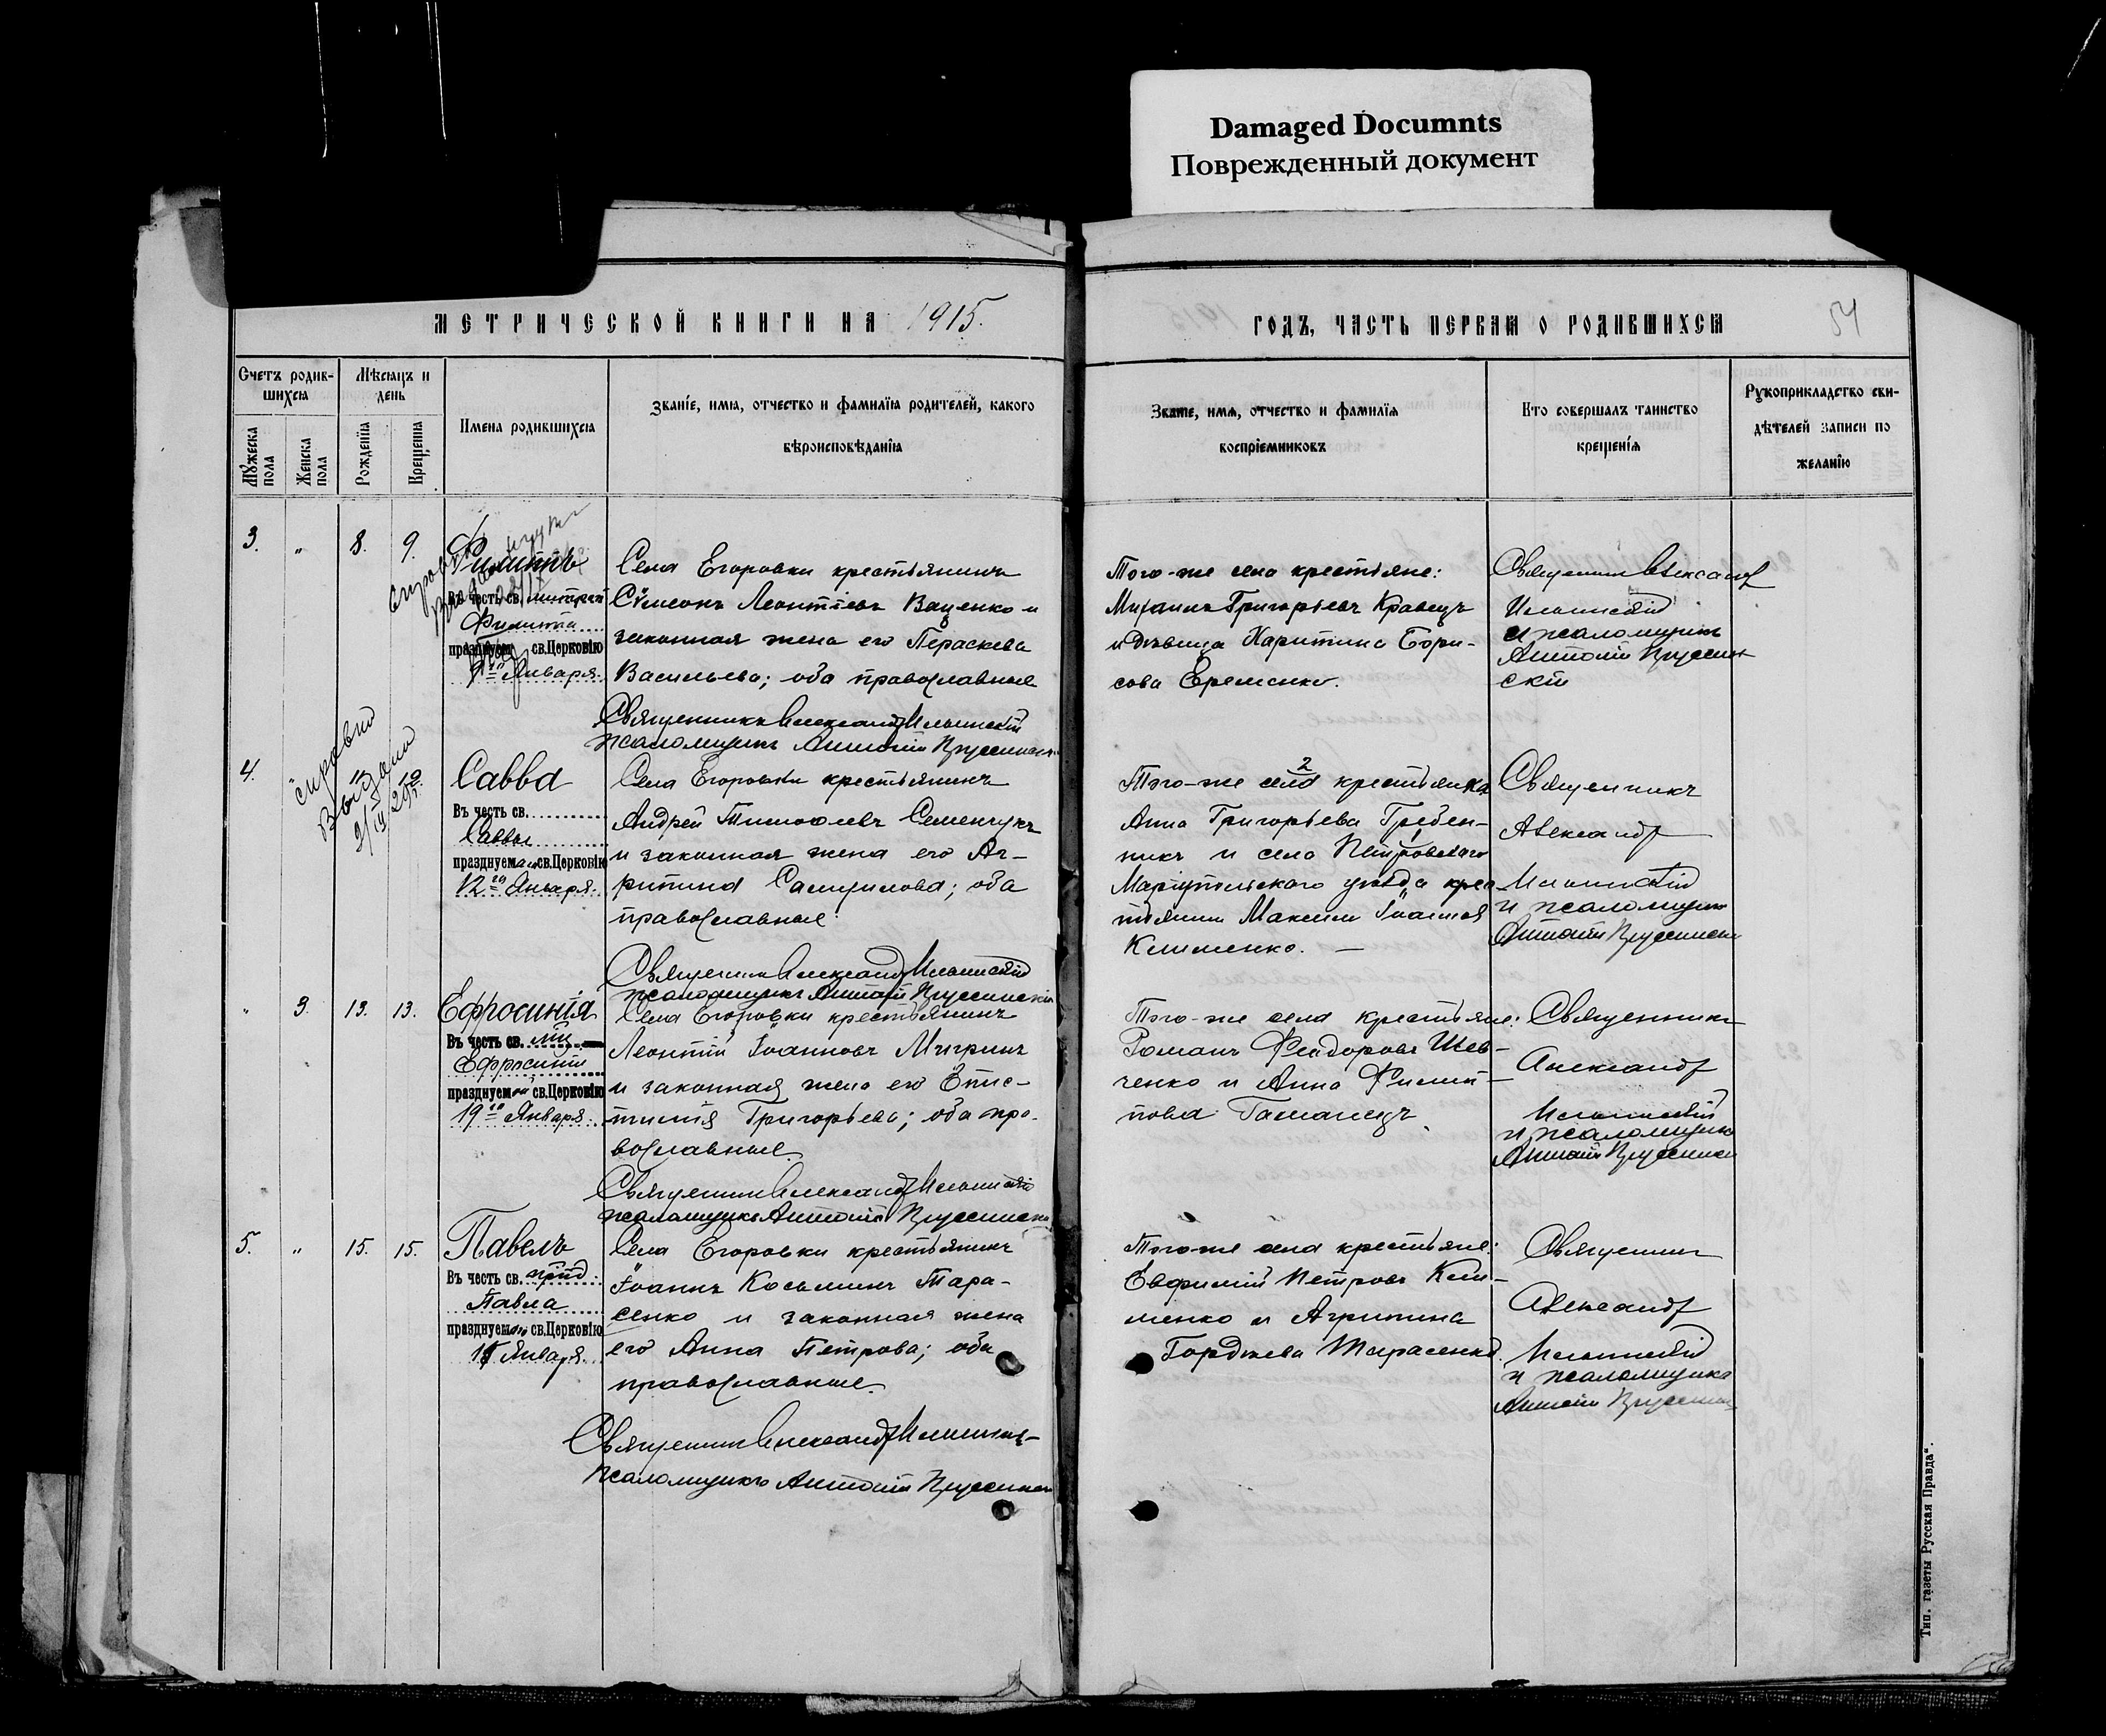 Damaged Documnts
Поврежденный документ
МЕТРИЧЕСКОЙ КНИГИ НА 1915.
ГОДЪ, ЧАСТЬ ПЕРВАЯ О РОДИВШИХСЯ
54
Счетъ родив-
шихся
Мѣсяцъ и
день
Мужеска
пола
Женска
пола
Рожденїя
Крещенїя
Имена родившихся
Званїе, имя, отчество и фамилїя родителей, какого
вѣроисповѣданїя
Званїе, имя, отчество и фамилїя
воспрїемниковъ
Кто совершалъ таинство
крещенїя
Рукоприкладство сви-
дѣтелей записи по
желанїю
3. " 8. 9.
Филиппъ
Въ честь св.
Филиппа
св. Церковію
9го Января.
Села Егоровки крестьянинъ
Сѵмеонъ Леонтіевъ Ваценко и
законная жена его Параскева
Васильева; оба православные
Священникъ Александръ Ильинскій
Псаломщикъ Антоній
Того-же села крестьяне:
Михаилъ Григорьевъ Кравецъ
и дѣвица Харитина Бори-
сова Еременко.
Священникъ Александръ
Ильинскій
и псаломщикъ
Антоній
скій
4. 11 12
справка
Выдана
Савва
Въ честь св.
Саввы
празднуемаго св. Церковію
12го Января.
Села Егоровки крестьянинъ
Андрей Тимофеевъ Семенчукъ
и законная жена его Аг-
рипина Самуилова; оба
православные.
Священникъ Александръ Ильинскій
псаломщикъ Антоній
Того-же села крестьянка
Анна Григорьева Гребен-
никъ и села Петровскаго
Маріупольскаго уѣзда крес-
тьянинъ Максимъ Іоанновъ
Клименко. —
Священникъ
Александръ
Ильинскій
и псаломщикъ
Антоній
" 3. 13. 13.
Ефросинія
Въ честь св. мц.
Ефросиніи
празднуемой св. Церковію
19го Января.
Села Егоровки крестьянинъ
Леонтій Іоанновъ Мигринъ
и законная жена его Епис-
тимія Григорьева; оба пра-
вославные.
Священникъ Александръ Ильинскій
псаломщикъ Антоній
Того-же села крестьяне:
Романъ Феодоровъ Шев-
ченко и Анна Филип-
пова
Священникъ
Александръ
Ильинскій
и псаломщикъ
Антоній
5. " 15. 15.
Павелъ
Въ честь св. прпд.
Павла
празднуемаго св. Церковію
15 Января.
Села Егоровки крестьянинъ
Іоаннъ Косьминъ Тара-
сенко и законная жена
его Анна Петрова; оба
православные.
Священникъ Александръ Ильинскій
Псаломщикъ Антоній
Того-же села крестьяне:
Евфимій Петровъ Кли-
менко и Агрипина
Гордіева Тарасенко.
Священникъ
Александръ
Ильинскій
и псаломщикъ
Антоній
Тип. газеты Русская Правда".